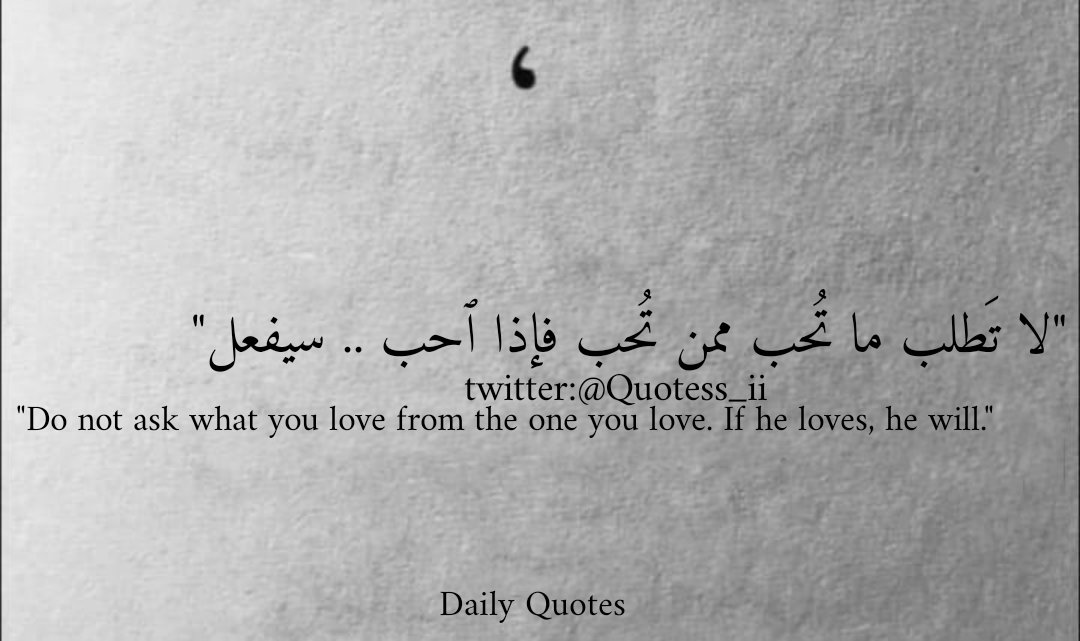 ‘
"لا تَطلب ما تُحب ممن تُحب فإذا ٱحب .. سيفعل"
twitter:@Quotess_ii
"Do not ask what you love from the one you love. If he loves, he will."
Daily Quotes